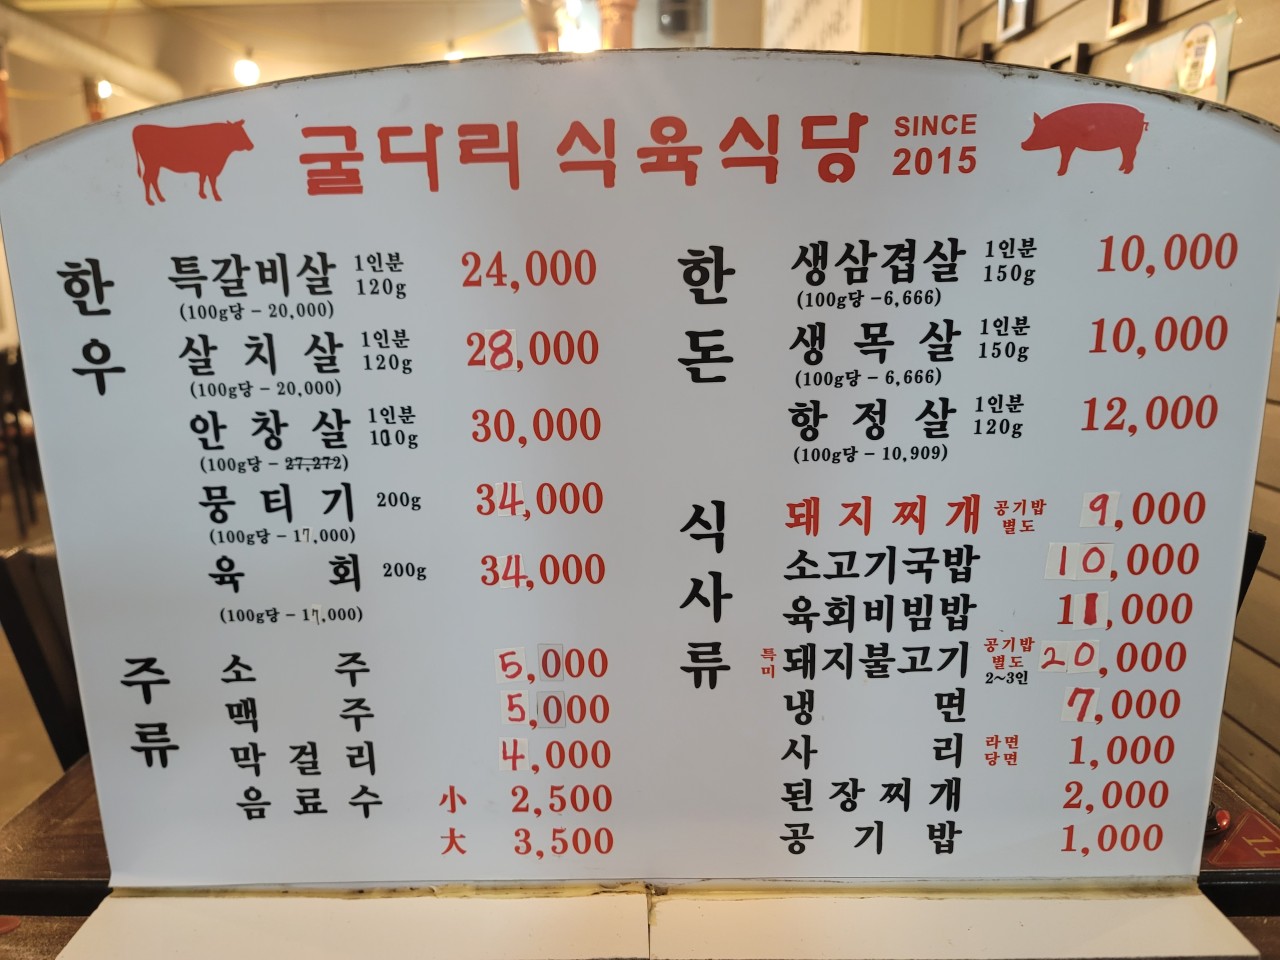 굴다리 식육식당 SINCE 2015
한우
특갈비살 1인분 120g 24,000
(100g당 - 20,000)
살치살 1인분 120g 28,000
(100g당 - 20,000)
안창살 1인분 110g 30,000
(100g당 - 27,272)
뭉티기 200g 34,000
(100g당 - 17,000)
육회 200g 34,000
(100g당 - 17,000)
주류
소주 5,000
맥주 5,000
막걸리 4,000
음료수 小 2,500
大 3,500
한돈
생삼겹살 1인분 150g 10,000
(100g당 - 6,666)
생목살 1인분 150g 10,000
(100g당 - 6,666)
항정살 1인분 120g 12,000
(100g당 - 10,909)
식사류
돼지찌개 공기밥 별도 9,000
소고기국밥 10,000
육회비빔밥 11,000
특미 돼지불고기 공기밥 별도 2~3인 20,000
냉면 7,000
사리 라면 당면 1,000
된장찌개 2,000
공기밥 1,000
11